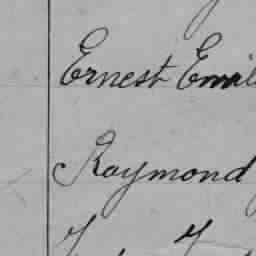 Ernest Emil
Raymond